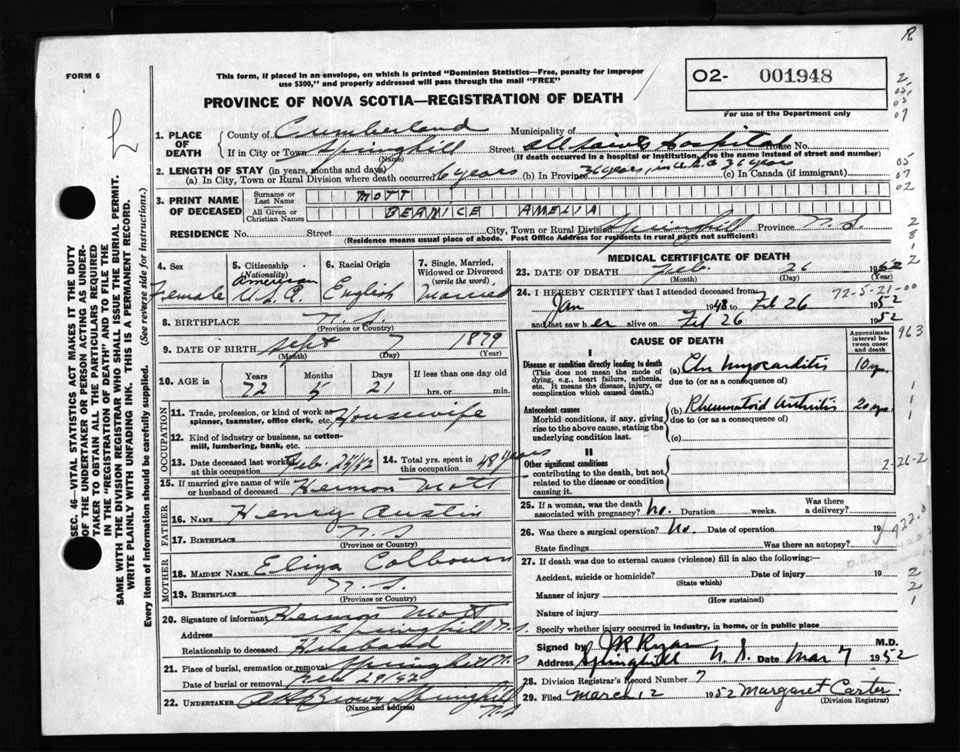 R.
FORM 6
This form, if placed in an envelope, on which is printed "Dominion Statistics—Free, penalty for improper
use $300," and properly addressed will pass through the mail "FREE"
O2- 001948
For use of the Department only
PROVINCE OF NOVA SCOTIA—REGISTRATION OF DEATH
SEC. 46—VITAL STATISTICS ACT MAKES IT THE DUTY
OF THE UNDERTAKER OR PERSON ACTING AS UNDER-
TAKER TO OBTAIN ALL THE PARTICULARS REQUIRED
IN THE "REGISTRATION OF DEATH" AND TO FILE THE
SAME WITH THE DIVISION REGISTRAR WHO SHALL ISSUE THE BURIAL PERMIT.
WRITE PLAINLY WITH UNFADING INK. THIS IS A PERMANENT RECORD.
Every item of information should be carefully supplied. (See reverse side for instructions.)
1. PLACE OF DEATH County of Cumberland Municipality of
If in City or Town Springhill (Name) Street All Saints Hospital House No.
(If death occurred in a hospital or institution, give the name instead of street and number)
2. LENGTH OF STAY (in years, months and days)
(a) In City, Town or Rural Division where death occurred 6 years (b) In Province 36 years, in U.S.A. 36 years (c) In Canada (if immigrant)
3. PRINT NAME OF DECEASED Surname or Last Name MOTT
All Given or Christian Names BERNICE AMELIA
RESIDENCE No. Street City, Town or Rural Division Springhill Province N.S.
(Residence means usual place of abode. Post Office Address for residents in rural parts not sufficient)
4. Sex Female
5. Citizenship (Nationality) American U.S.A.
6. Racial Origin English
7. Single, Married, Widowed or Divorced (write the word) Married
8. BIRTHPLACE N.S. (Province or Country)
9. DATE OF BIRTH Sept (Month) 7 (Day) 1879 (Year)
10. AGE Years 72 Months 5 Days 21 If less than one day old hrs. or min.
OCCUPATION
11. Trade, profession, or kind of work as spinner, teamster, office clerk, etc. Housewife
12. Kind of industry or business, as cotton-mill, lumbering, bank, etc.
13. Date deceased last worked at this occupation Feb. 25/52 14. Total yrs. spent in this occupation 48 years
15. If married give name of wife or husband of deceased Hermon Mott
FATHER
16. NAME Henry Austin
17. BIRTHPLACE N.S. (Province or Country)
MOTHER
18. MAIDEN NAME Eliza Colbourn
19. BIRTHPLACE N.S. (Province or Country)
20. Signature of informant Hermon Mott
Address Springhill N.S.
Relationship to deceased Husband
21. Place of burial, cremation or removal Springhill N.S.
Date of burial or removal Feb 29/52
22. UNDERTAKER Brown Springhill N.S.
(Name and address)
MEDICAL CERTIFICATE OF DEATH
23. DATE OF DEATH Feb. (Month) 26 (Day) 1952 (Year)
24. I HEREBY CERTIFY that I attended deceased from 72-5-21-00
Jan 1948 to Feb 26 1952
and last saw her alive on Feb 26 1952
CAUSE OF DEATH
Approximate interval between onset and death
I
Disease or condition directly leading to death
(This does not mean the mode of dying, e.g., heart failure, asthenia, etc. It means the disease, injury, or complication which caused death.)
(a) Chr Myocarditis 10 yrs.
due to (or as a consequence of)
Antecedent causes
Morbid conditions, if any, giving rise to the above cause, stating the underlying condition last.
(b) Rheumatoid Arthritis 20 yrs.
due to (or as a consequence of)
(c)
II
Other significant conditions
contributing to the death, but not related to the disease or condition causing it.
2-26-2
25. If a woman, was the death associated with pregnancy? No. Duration weeks. Was there a delivery?
26. Was there a surgical operation? No. Date of operation 19
State findings Was there an autopsy?
27. If death was due to external causes (violence) fill in also the following:—
Accident, suicide or homicide? (State which) Date of injury 19
Manner of injury (How sustained)
Nature of injury
Specify whether injury occurred in industry, in home, or in public place
Signed by J R Ryan M.D.
Address Springhill N.S. Date Mar 7 1952
28. Division Registrar's Record Number 7
29. Filed March 12 1952 Margaret Carter.
(Division Registrar)